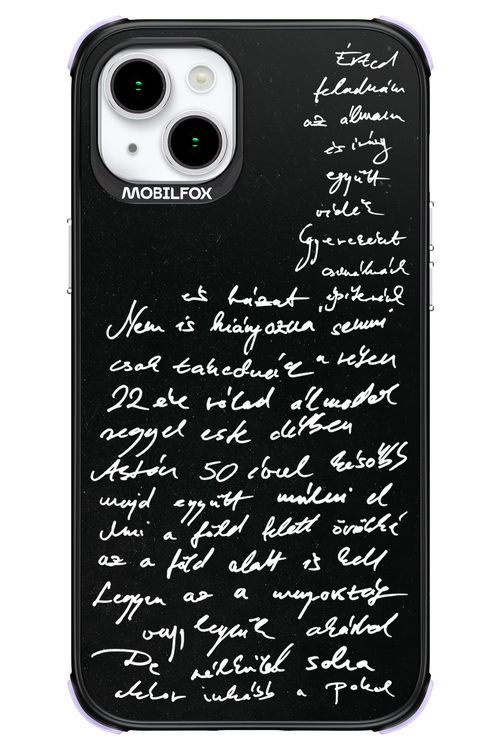 MOBILFOX
Érted
feladnám
az álmom
és irány
együtt
vidék
Gyerekeint
csinálnánk
és házat építenénk
Nem is hiányozna semmi
csak takarodnánk a
22 éve rólad álmodok
reggel este délben
Aztán 50 évvel később
majd együtt múlni el
Ami a föld felett örökké
az a föld alatt is kell
Legyen az a mennyország
vagy legyünk akárhol
De nélküled soha
akkor inkább a Pokol